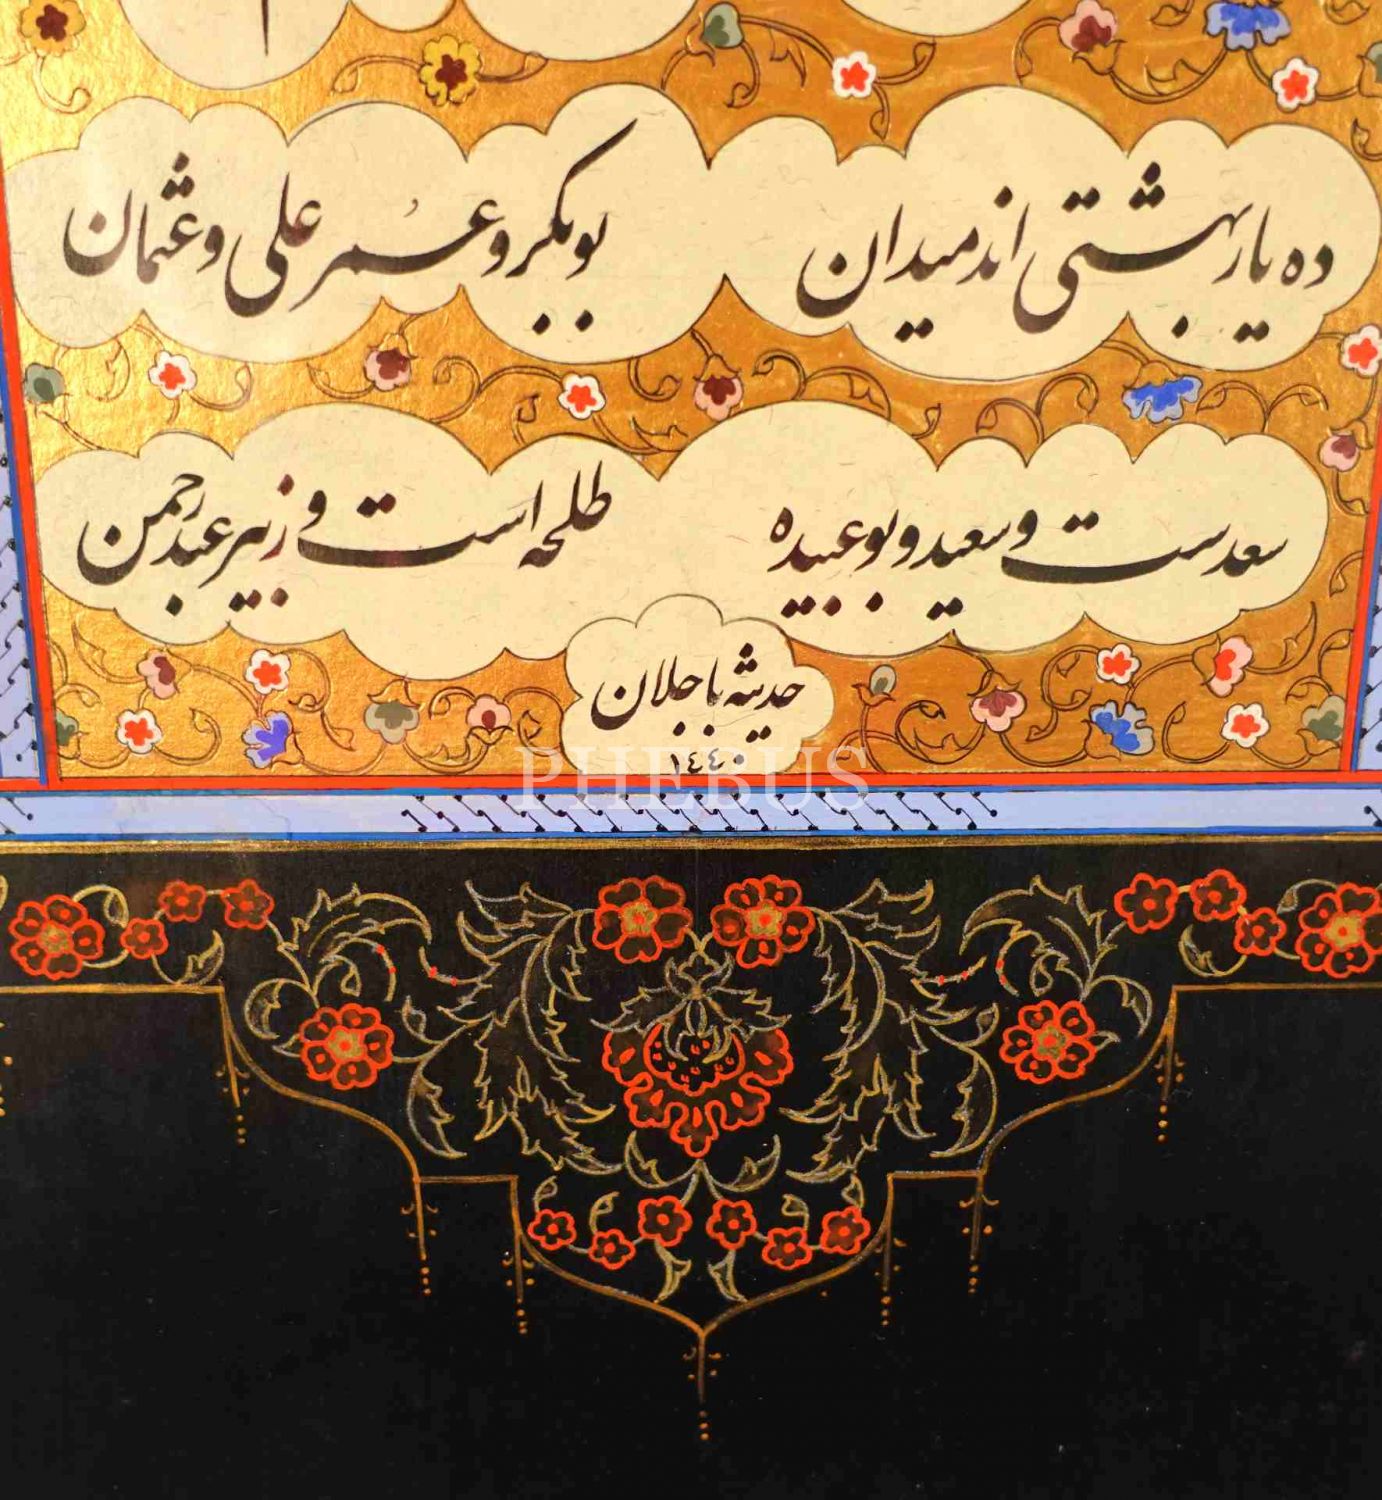 ده یار بهشتی اند میدان
بوبکر و عُمر علی و عثمان
سعدست و سعید و بوعبیده
طلحه است و زبیر عبدرحمن
حدیثه باجلان
١٤٤٠
PHEBUS